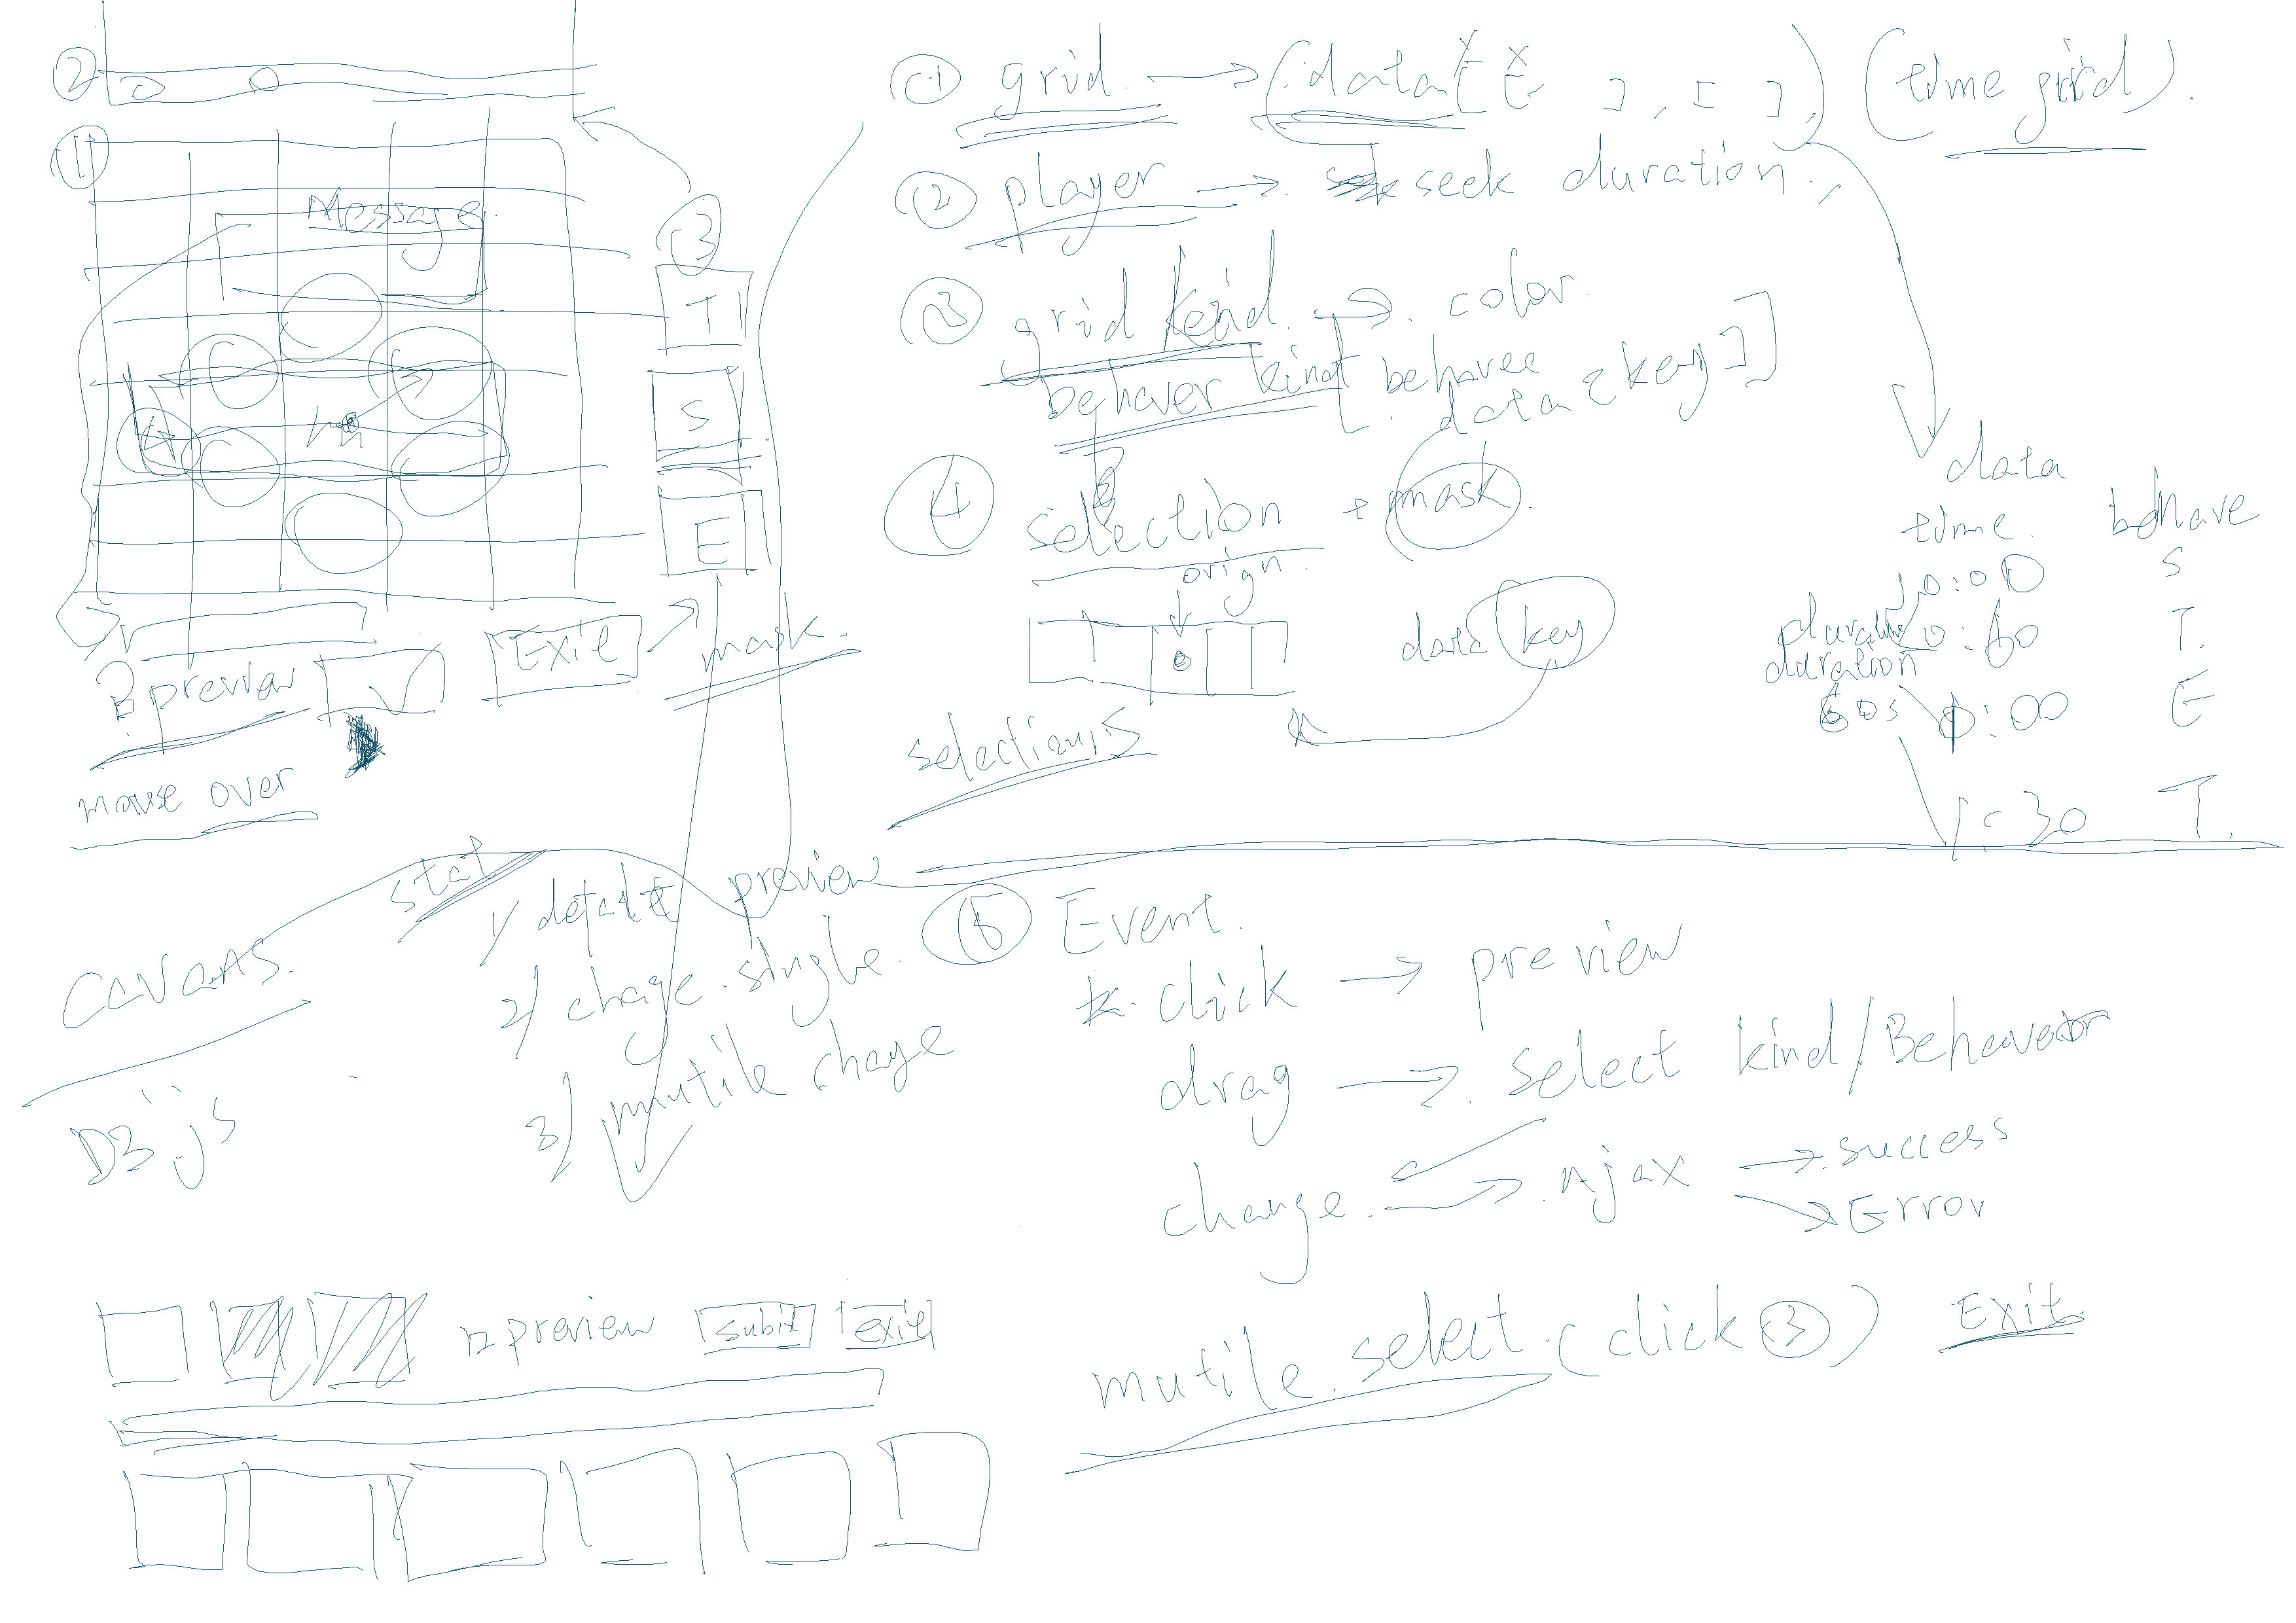 2
1
Message
3
T
S
E
4
preview
Exit
mask.
mouse over
① grid. → (data[[ ], [ ], ) (time grid).
② player → seek duration.,
③ grid kind. → color.
behaver kind
behavee
data 2 key]]
④ selection + mask.
orign.
data key
selections
data
time. behave
0:00 S
0:60 T.
duration
60s 1:00 E
1:30 T.
stat
1) default preview
2) chage. single.
3) mutile chaye
cavans.
D3 js
⑤ Event.
click → preview
drag → select kind/Behaveor
change. → Ajax → success
→ Error
mutile. select. (click ③) Exit.
preview subit exit